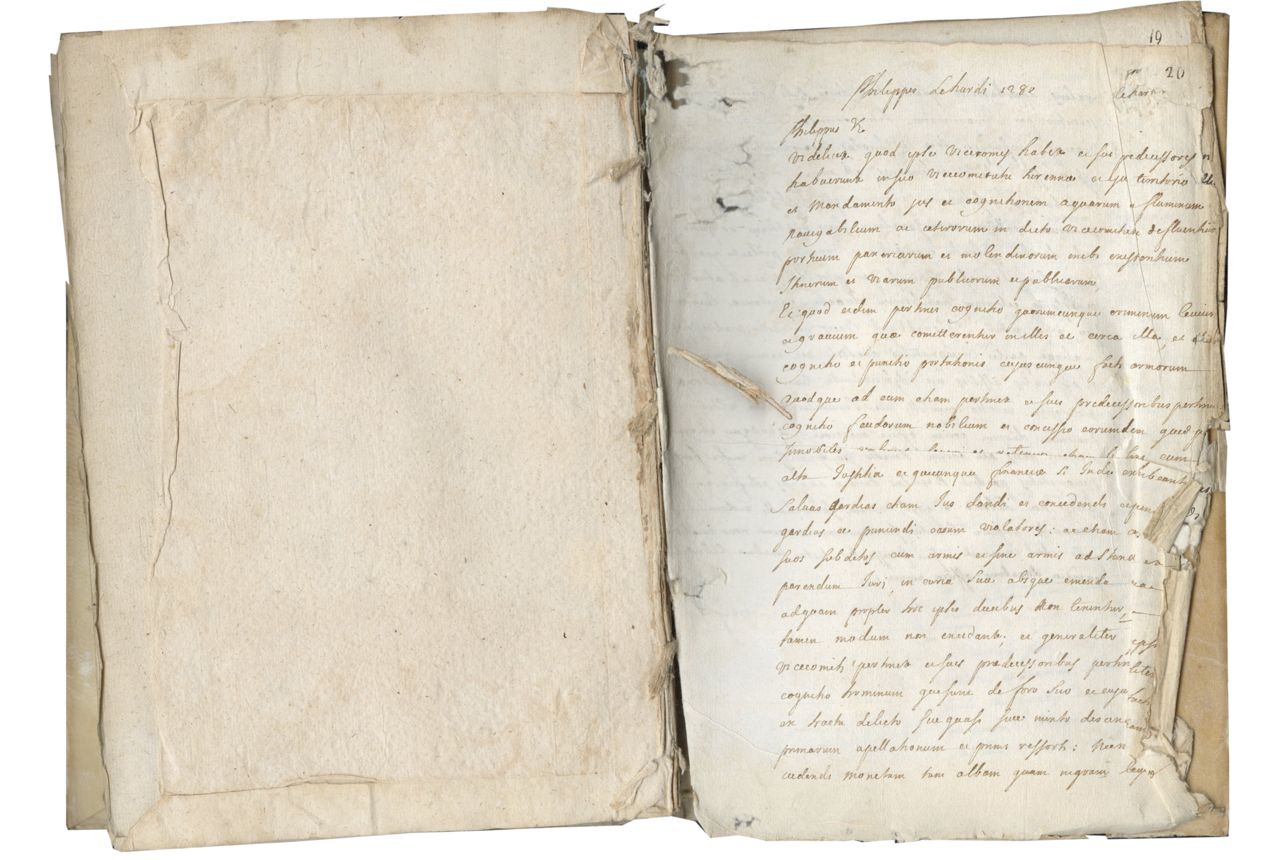 19
20
Philippes Lehardi 1282
lehar
Philippus &c
Videlicet quod ipse Vicecomes habet et sui predecessores
habuerunt in suo Vicecomitatu turennæ et ejus territorio
et Mandamento jus et cognitionem aquarum et fluminum
Navigabilium ac ceterorum in dicto vicecomitatu defluentium
portuum paxeriarum et molendinorum in eis existentium
Itinerum et viarum publicorum et publicarum,
Et quod eidem pertinet cognitio quorumcunque criminum levium
et gravium quæ comitterentur in illis et circa illa, et
cognitio et punitio portationis cujuscunque facti armorum
Quodque ad eum etiam pertinet et suis predecessoribus
cognitio feudorum nobilium et concessio eorumdem quod
innobiles et retinere cum
alta Justitia et quæcunque financia si Inde exhibeant
Salvas gardias etiam Jus dandi et concedendi
gardias et puniendi earum violatores: ac etiam
suos subditos cum armis et sine armis ad
parendum Juri, in curia sua absque emenda
ad quam propter hoc ipsis ducibus Non tenentur
tamen modum non excedant, et generaliter
vicecomiti pertinet et suis predecessoribus
cognitio hominum qui sunt de foro suo et
ex tractu delicto sive quasi sive
primarum apellationum et primi ressorti:
cudendi Monetam tam albam quam nigram